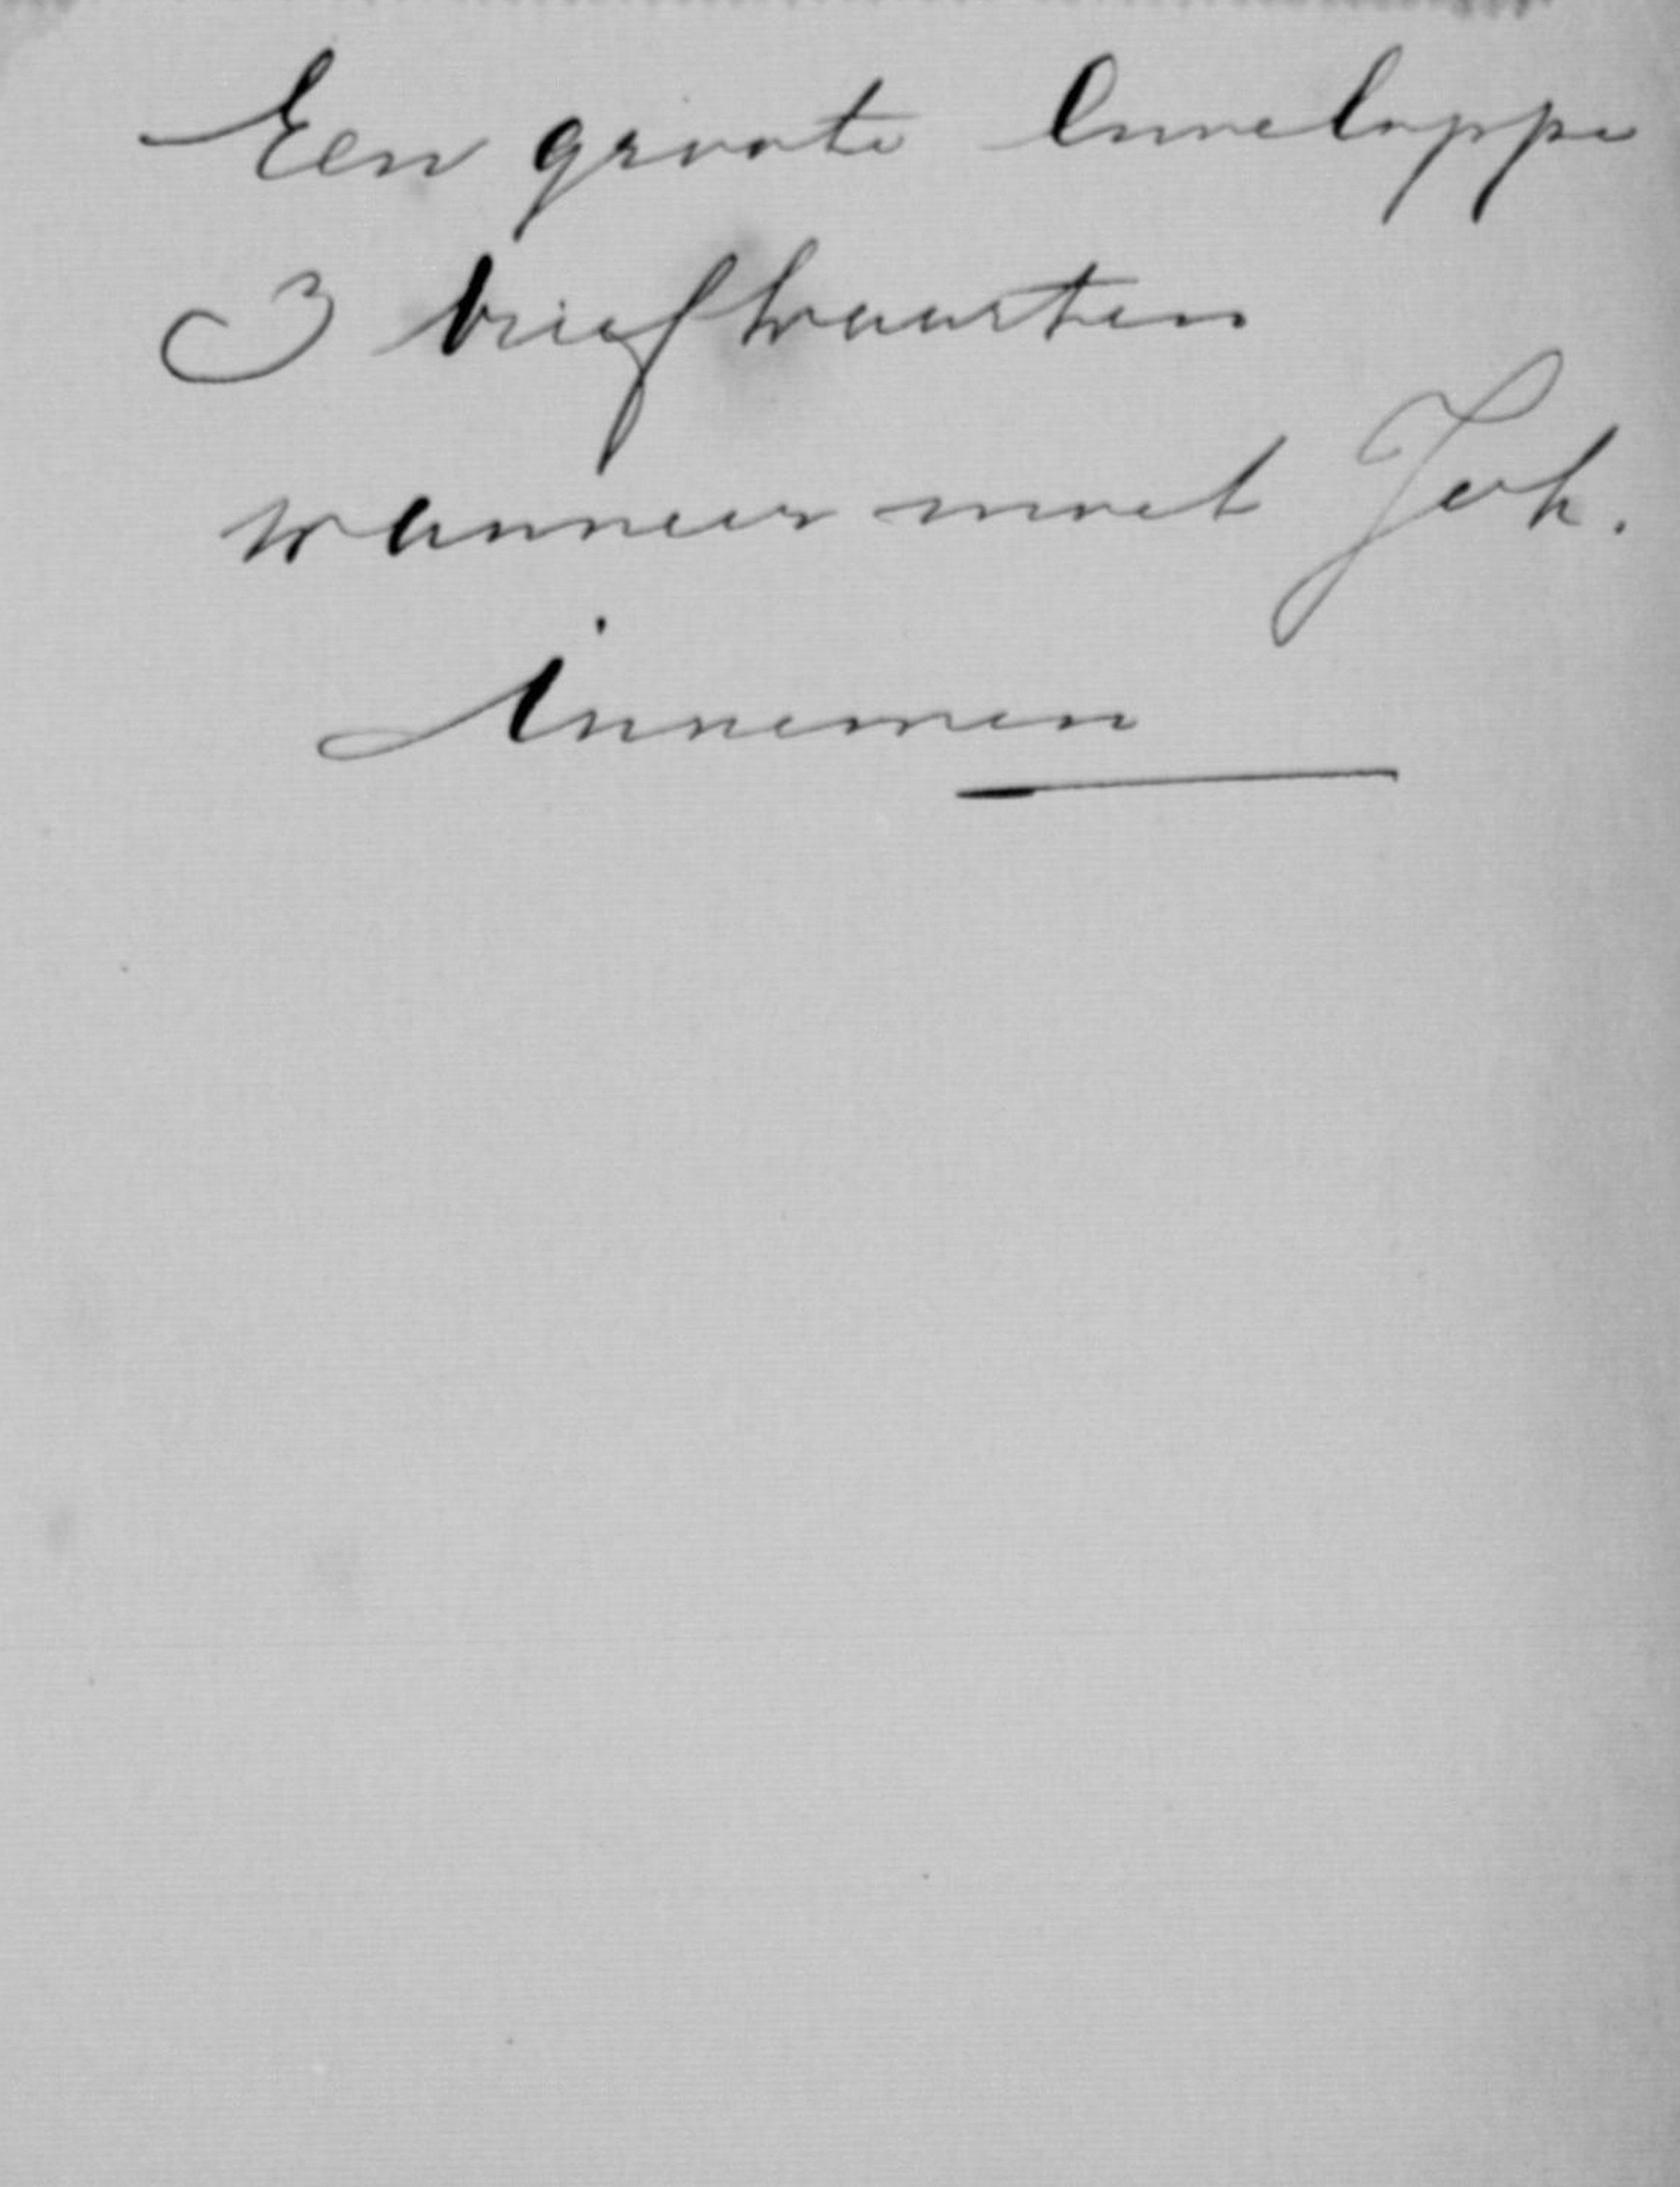 Een groote Enveloppe
3 briefkaarten
wanneer moet Joh.
Innemen